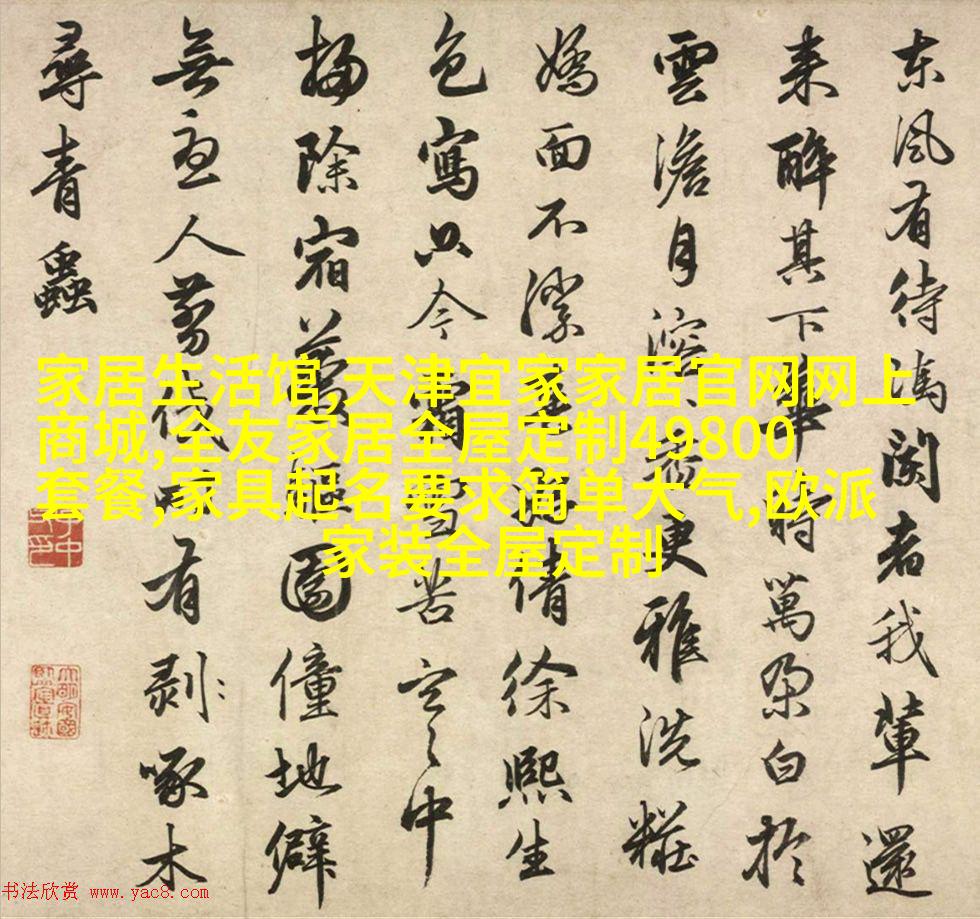 东風有待者我輩還
来醉其下時萬朶白於
雲澹月溶更雅洗糚
嫣面不倩徐熙生
色寫只今霜雪苦空之中
掃除宿園僮地僻
無人剪伐有剥啄木
尋青蟲
家居生活馆,天津宜家家居官网网上
商城,全友家居全屋定制49800
套餐,家具起名要求简单大气,欧派
家装全屋定制
书法欣赏 www.yac8.com